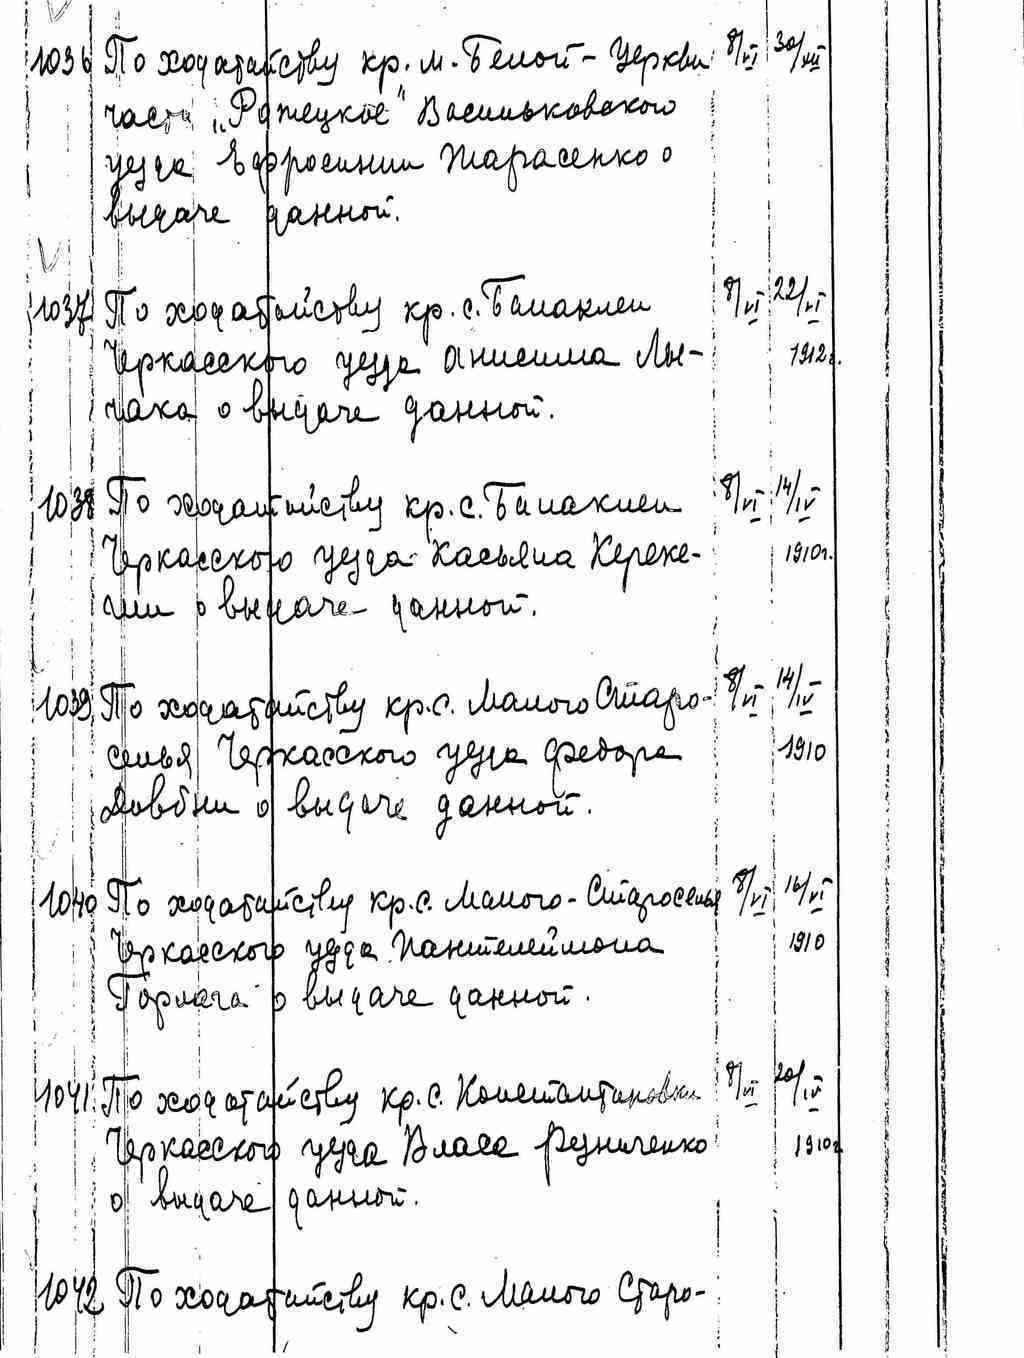 1036 По ходатайству кр. м. Белой-Церкви 8/VI 30/VII
части „Ротецкое" Васильковского
уезда Ефросинии Тарасенко о
выдаче данной.
1037 По ходатайству кр. с. Балаклеи 8/VI 22/VI
Черкасского уезда Анисима Лы- 1912г.
чака о выдаче данной.
1038 По ходатайству кр. с. Балаклеи 8/VI 14/IV
Черкасского уезда Касьяна Кереке- 1910г.
ши о выдаче данной.
1039 По ходатайству кр. с. Малого Старо- 8/VI 14/IV
селья Черкасского уезда Федора 1910
Довбни о выдаче данной.
1040 По ходатайству кр. с. Малого-Староселья 8/VI 16/VI
Черкасского уезда Пантелеймона 1910
Горлача о выдаче данной.
1041 По ходатайству кр. с. Константиновки 8/VI 20/IV
Черкасского уезда Власа Резниченко 1910г
о выдаче данной.
1042 По ходатайству кр. с. Малого Старо-